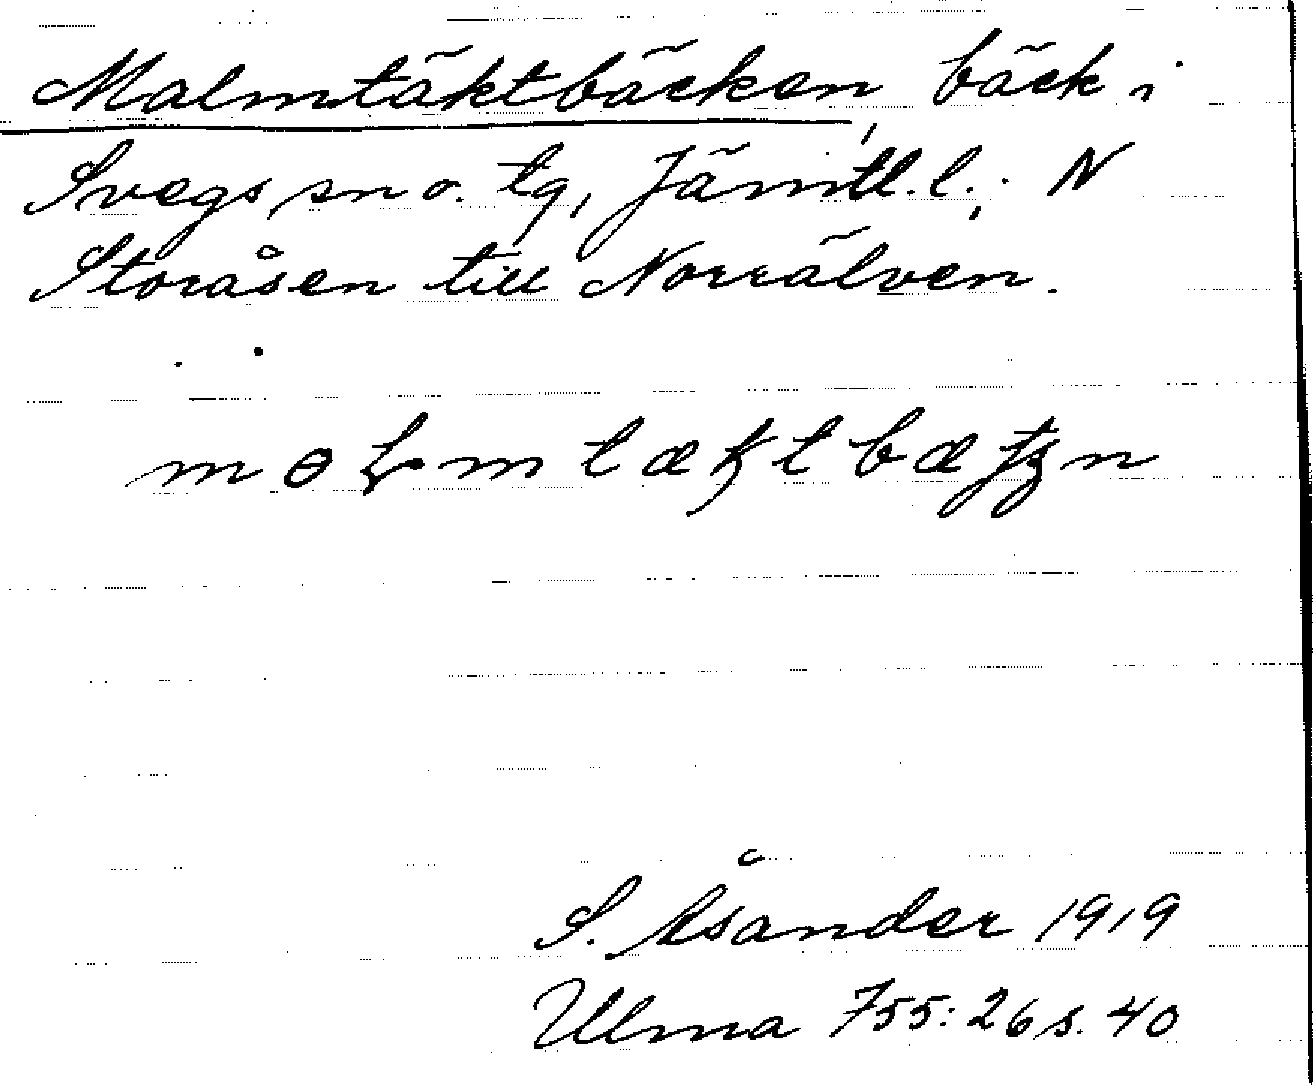 Malmtäktbäcken, bäck i
Svegs sn o. tg, Jämtl.l.; N
Storåsen till Norrälven.
S. Åsander 1919
Ulma 755:26 s. 40